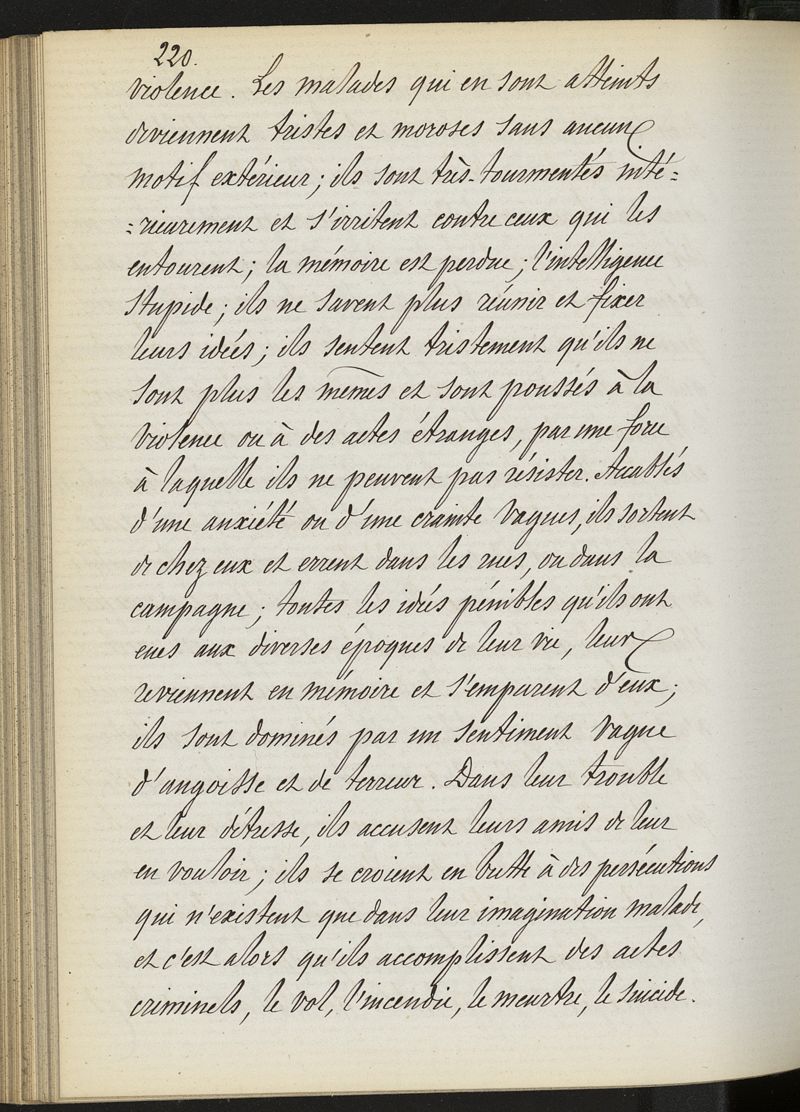 220.
violence. Les malades qui en sont atteints
deviennent tristes et moroses sans aucun
motif extérieur; ils sont très-tourmentés inté=
=rieurement et s'irritent contre ceux qui les
entourent; la mémoire est perdue; l'intelligence
stupide; ils ne savent plus réunir et fixer
leurs idées; ils sentent tristement qu'ils ne
sont plus les mêmes et sont poussés à la
violence ou à des actes étranges, par une force
à laquelle ils ne peuvent pas résister. Accablés
d'une anxiété ou d'une crainte vagues, ils sortent
de chez eux et errent dans les rues, ou dans la
campagne; toutes les idées pénibles qu'ils ont
eues aux diverses époques de leur vie, leur
reviennent en mémoire et s'emparent d'eux;
ils sont dominés par un sentiment vague
d'angoisse et de terreur. Dans leur trouble
et leur détresse, ils accusent leurs amis de leur
en vouloir; ils se croient en butte à des persécutions
qui n'existent que dans leur imagination malade,
et c'est alors qu'ils accomplissent des actes
criminels, le vol, l'incendie, le meurtre, le suicide.